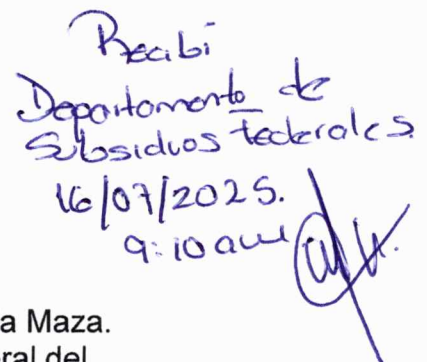 Recibí
Departamento de
Subsidios federales.
16/07/2025.
9:10 am
a Maza.
eral del